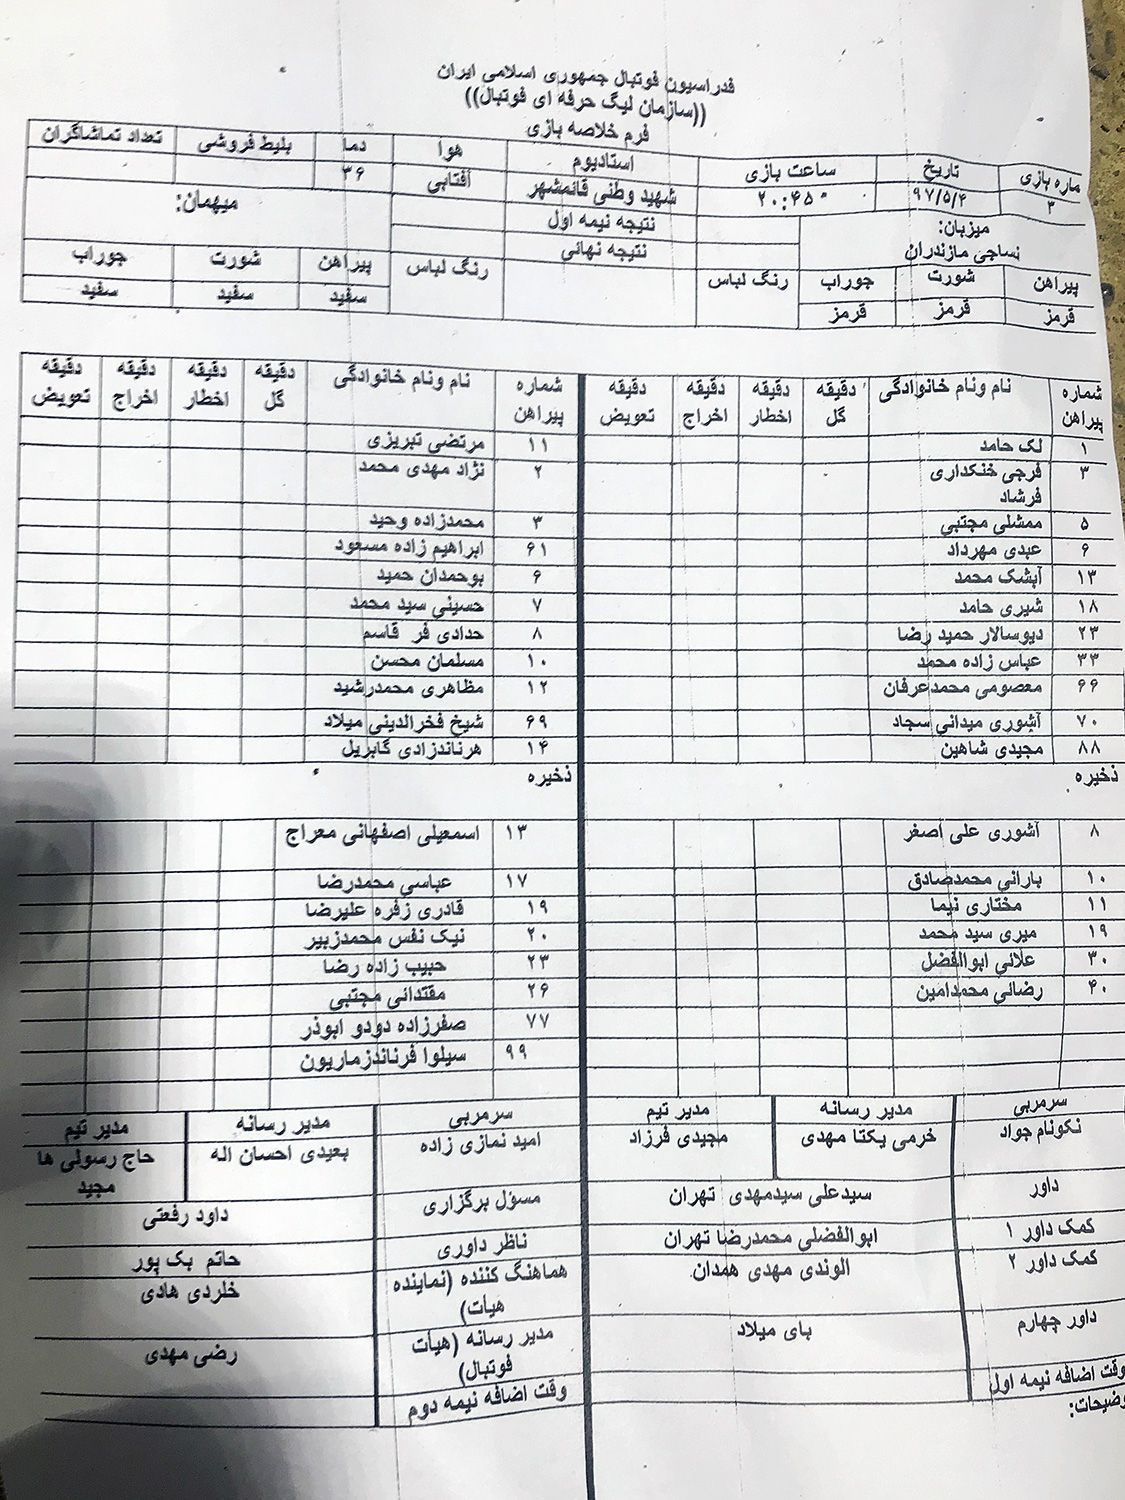 فدراسیون فوتبال جمهوری اسلامی ایران
((سازمان لیگ حرفه ای فوتبال))
فرم خلاصه بازی
ماره بازی تاریخ ساعت بازی استادیوم هوا دما بلیط فروشی تعداد تماشاگران
۳ ۹۷/۵/۴ ۲۰:۴۵ شهید وطنی قائمشهر آفتابی ۳۶
میزبان: نتیجه نیمه اول میهمان:
نساجی مازندران نتیجه نهائی
پیراهن شورت جوراب رنگ لباس رنگ لباس پیراهن شورت جوراب
قرمز قرمز قرمز سفید سفید سفید
شماره پیراهن نام ونام خانوادگی دقیقه گل دقیقه اخطار دقیقه اخراج دقیقه تعویض شماره پیراهن نام ونام خانوادگی دقیقه گل دقیقه اخطار دقیقه اخراج دقیقه تعویض
۱ لک حامد ۱۱ مرتضی تبریزی
۳ فرجی خنکداری فرشاد ۲ نژاد مهدی محمد
۵ ممشلی مجتبی ۳ محمدزاده وحید
۶ عبدی مهرداد ۶۱ ابراهیم زاده مسعود
۱۳ آبشک محمد ۶ بوحمدان حمید
۱۸ شیری حامد ۷ حسینی سید محمد
۲۳ دیوسالار حمید رضا ۸ حدادی فر قاسم
۳۳ عباس زاده محمد ۱۰ مسلمان محسن
۶۶ معصومی محمدعرفان ۱۲ مظاهری محمدرشید
۷۰ آشوری میدانی سجاد ۶۹ شیخ فخرالدینی میلاد
۸۸ مجیدی شاهین ۱۴ هرناندزادی گابریل
ذخیره ذخیره
۸ آشوری علی اصغر ۱۳ اسمعیلی اصفهانی معراج
۱۰ بارانی محمدصادق ۱۷ عباسی محمدرضا
۱۱ مختاری نیما ۱۹ قادری زفره علیرضا
۱۹ میری سید محمد ۲۰ نیک نفس محمدزبیر
۳۰ علائی ابوالفضل ۲۳ حبیب زاده رضا
۴۰ رضائی محمدامین ۲۶ مقتدائی مجتبی
۷۷ صفرزاده دودو ابوذر
۹۹ سیلوا فرناندزماریون
سرمربی مدیر رسانه مدیر تیم سرمربی مدیر رسانه مدیر تیم
نکونام جواد خرمی یکتا مهدی مجیدی فرزاد امید نمازی زاده بعیدی احسان اله حاج رسولی ها مجید
داور سیدعلی سیدمهدی تهران مسؤل برگزاری داود رفعتی
کمک داور ۱ ابوالفضلی محمدرضا تهران ناظر داوری حاتم بک پور
کمک داور ۲ الوندی مهدی همدان هماهنگ کننده (نماینده هیات) خلردی هادی
داور چهارم بای میلاد مدیر رسانه (هیات فوتبال) رضی مهدی
وقت اضافه نیمه اول وقت اضافه نیمه دوم
وضیحات: